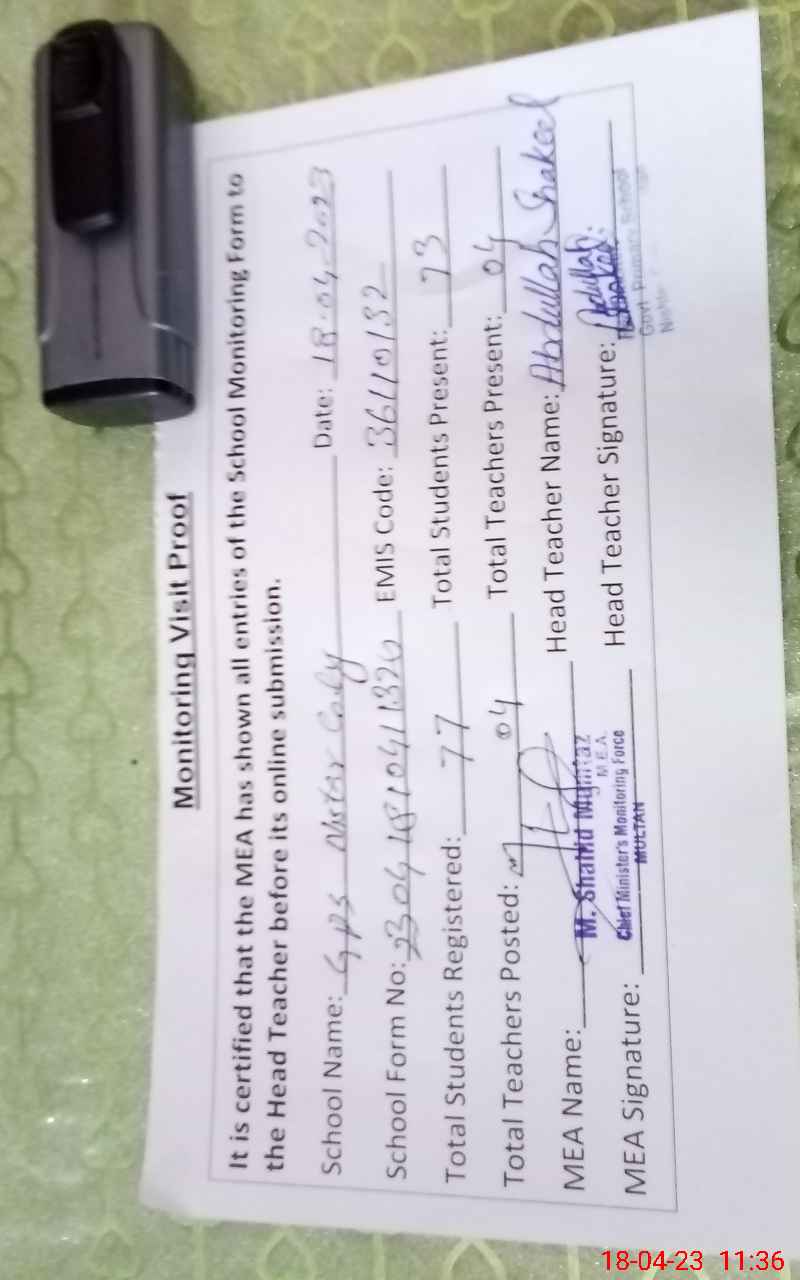 Monitoring Visit Proof
It is certified that the MEA has shown all entries of the School Monitoring Form to
the Head Teacher before its online submission.
School Name: GPS Nishtar Colony Date: 18-04-2023
School Form No: EMIS Code: 36110132
Total Students Registered: 77 Total Students Present: 73
Total Teachers Posted: 04 Total Teachers Present: 04
MEA Name: M. Shahid Mumtaz Head Teacher Name: Abdullah Shakeel
M.E.A.
Chief Minister's Monitoring Force
MULTAN
MEA Signature: Head Teacher Signature: Abdullah Shakeel
Govt. Primary School
18-04-23 11:36